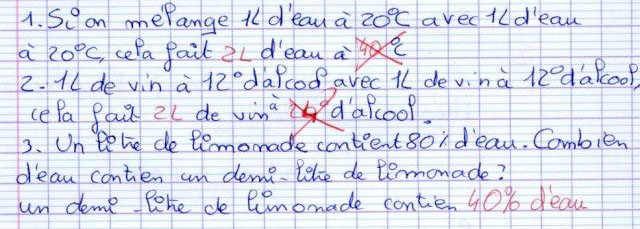 1. Si on mélange 1L d'eau à 20°C avec 1L d'eau
à 20°C, cela fait 2L d'eau à 40°C
2. 1L de vin à 12° d'alcool avec 1L de vin à 12° d'alcool,
cela fait 2L de vin à 24° d'alcool.
3. Un litre de limonade contient 80% d'eau. Combien
d'eau contien un demi-litre de limonade?
un demi-litre de limonade contien 40% d'eau